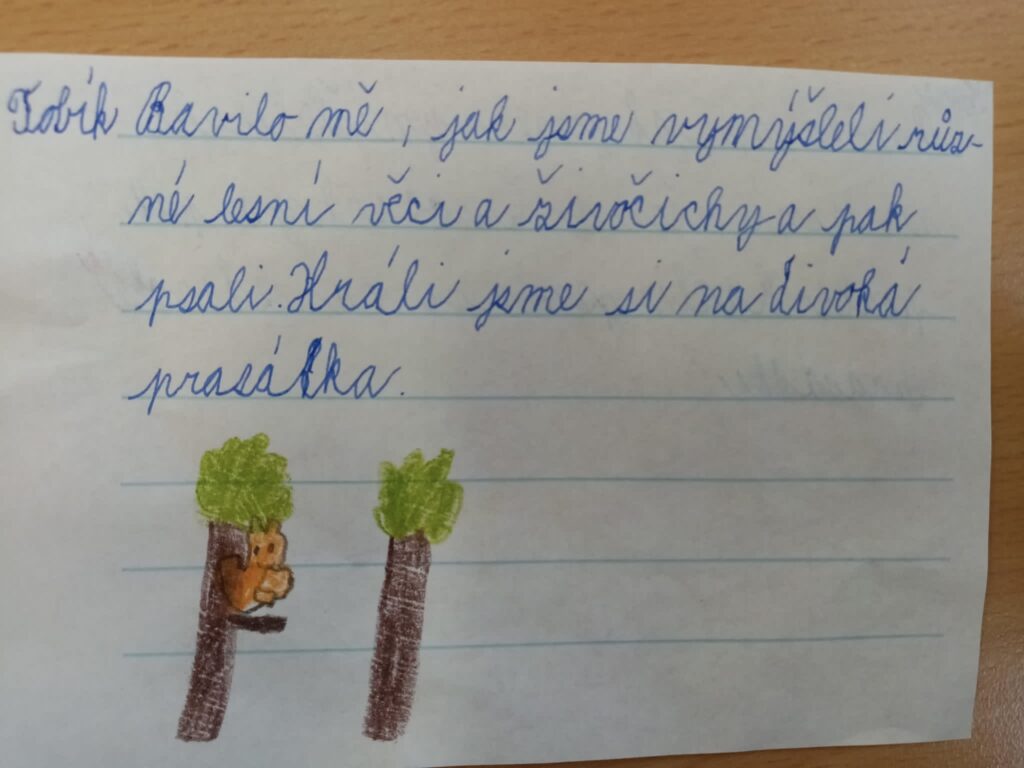 Tobík Bavilo mě, jak jsme vymýšleli růz-
né lesní věci a živočichy a pak
psali. Hráli jsme si na divoká
prasátka.